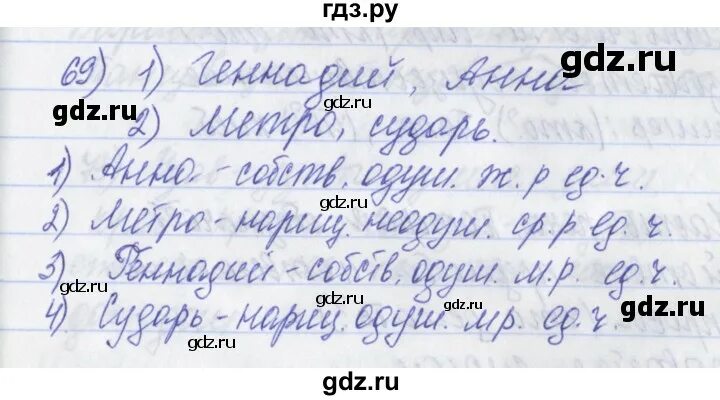 гдз.ру
gdz.ru
69) 1) Геннадий, Анна
gdz.ru
gdz.ru
2) Метро, сударь.
1) Анна - собств. одуш. ж. р ед. ч.
gdz.ru
2) Метро - нариц. неодуш. ср. р ед. ч.
3) Геннадий - собств. одуш. м. р. ед. ч.
gdz.ru
gdz.ru
4) Сударь - нариц. одуш. м р. ед. ч.
gdz.ru
gdz.ru
gdz.ru
gdz.ru